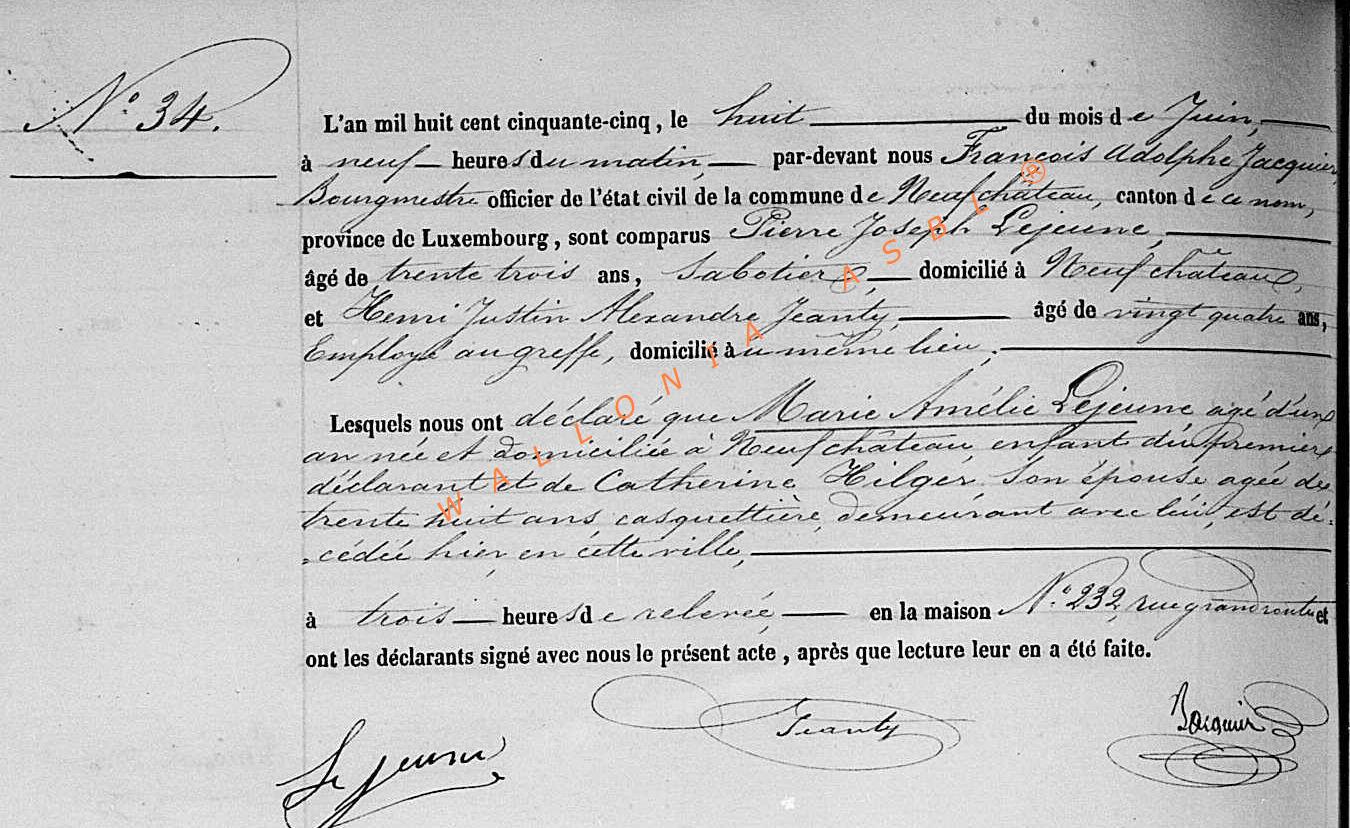 N.° 34.
L'an mil huit cent cinquante-cinq, le huit du mois de Juin,
à neuf heures du matin, par-devant nous François Adolphe Jacquier,
Bourgmestre officier de l'état civil de la commune de Neufchâteau, canton de ce nom,
province de Luxembourg, sont comparus Pierre Joseph Lejeune,
âgé de trente trois ans, sabotier, domicilié à Neufchâteau,
et Henri Justin Alexandre Jeanty, âgé de vingt quatre ans,
Employé au greffe, domicilié au même lieu.
Lesquels nous ont déclaré que Marie Amélie Lejeune agé d'un
an née et domiciliée à Neufchâteau, enfant du premier
déclarant et de Catherine Hilger son épouse agée de
trente huit ans casquettière, demeurant avec lui, est dé-
-cédée hier, en cette ville,
à trois heures de relevée, en la maison N.° 232, rue grand route et
ont les déclarants signé avec nous le présent acte, après que lecture leur en a été faite.
Lejeune Jeanty Jacquier
WALLONIA ASBL ®